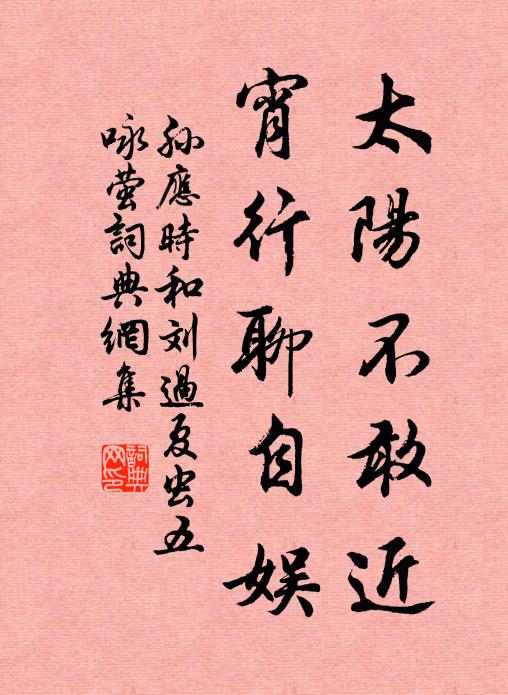 太陽不敢近
宵行聊自娱
孙應時和刘過夏虫五
咏萤詞典網集
詞典网印